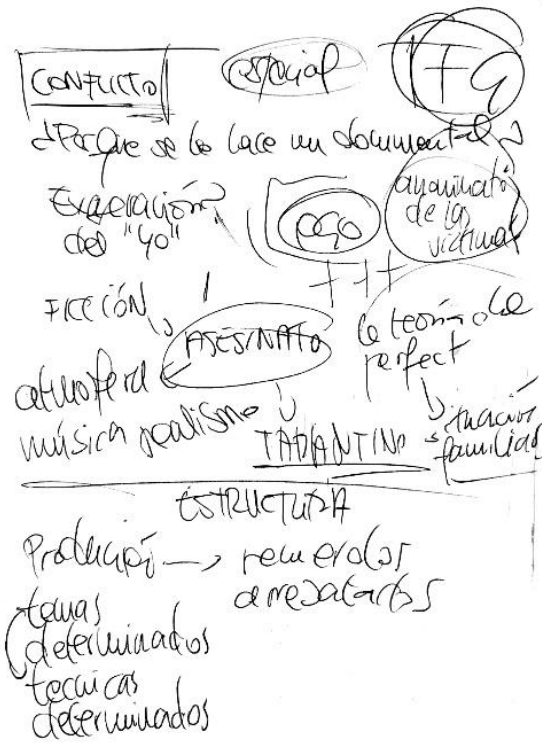 CONFLICTO especial
¿Porque se le hace un documental?
Exageración ego anonimato
del "yo" de las
victimas
FICCIÓN
ASESINATO la teoría de
perfect
atmosfera
música realismo TARANTINO situación
familiar
ESTRUCTURA
Producción → recuerdos
temas
determinados
tecnicas
determinados